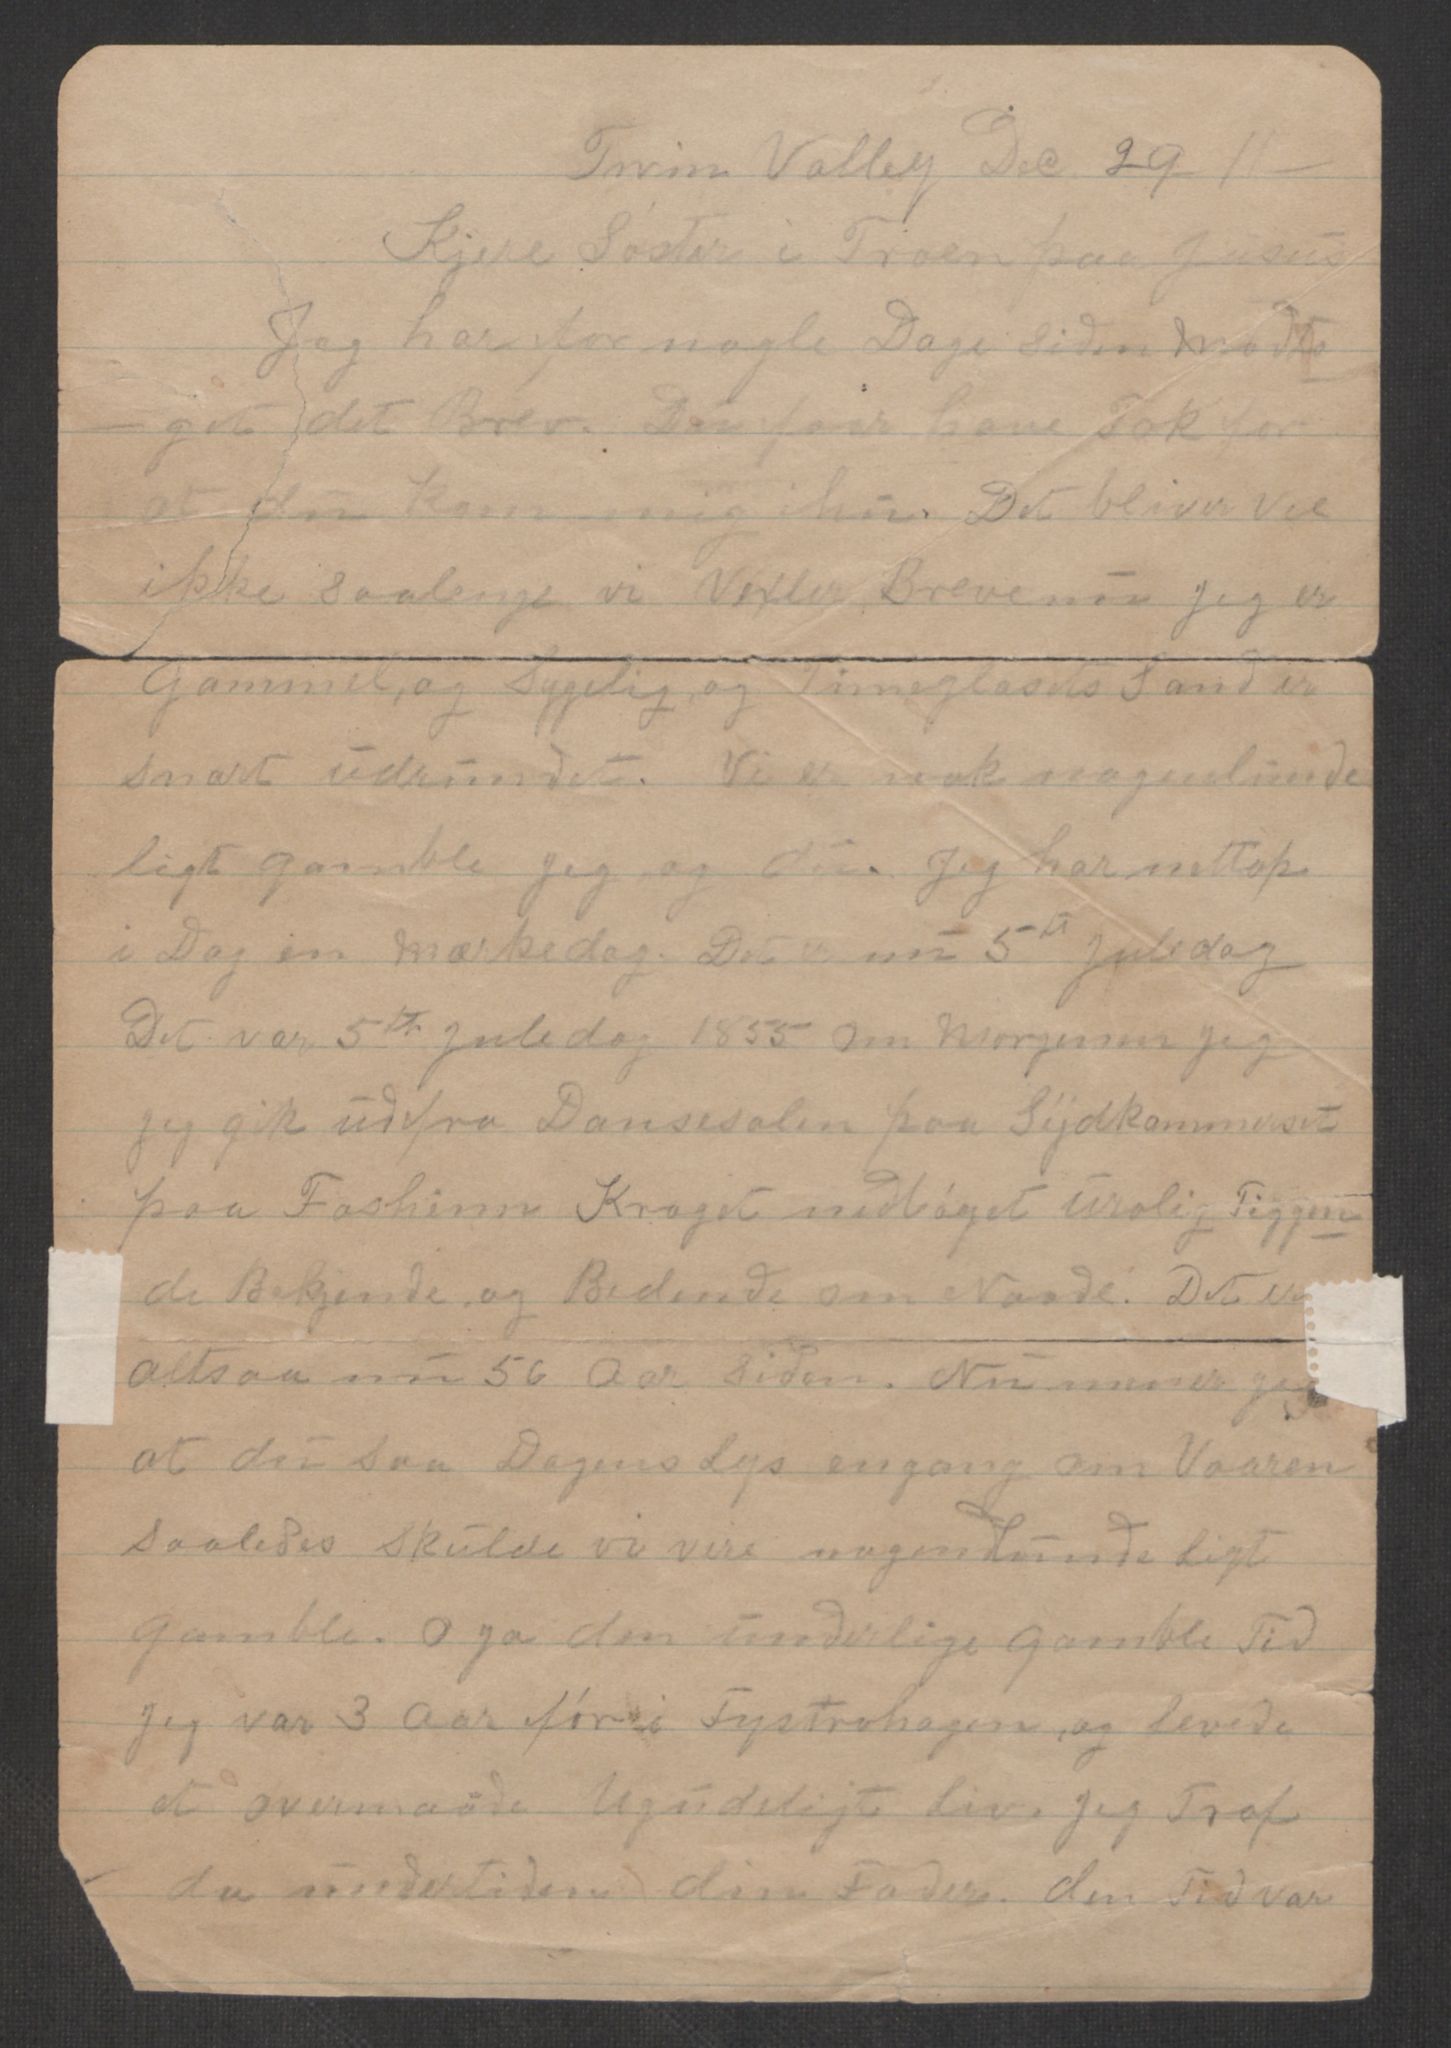 Twin Valley Dec. 29 11
Kjere Søster i Troen paa Jesus
Jeg har for nogle Dage siden modta
- get det Brev. Du faar have Tak for
at du kom mig ihu. Det bliver vel
ikke saalenge vi Vexler Breve nu jeg er
Gammel, og Sygelig, og Timeglasets Sand er
snart udrundet. Vi er nok nogenlunde
ligt gamble jeg og du. Jeg har nettop
i Dag en Mærkedag. Det er nu 5te juledag
Det var 5te juledag 1855 om Morgenen jeg
jeg gik ud fra Dansesalen paa Sydkammerset
paa Foshiem Kroget nedbøget urolig Tiggen
de Bekjende, og Bedende om Naade. Det er
altsaa nu 56 Aar siden. Nu mener jeg
at du saa Dagens Lys engang om Vaaren
saaledes skulde vi vere nogenlunde ligt
gamble. O ja den underlige gamble Tid
jeg var 3 Aar før i Fystrohagen, og levede
et overmaade Ugudeligt Liv. Jeg Traf
da undertiden din Fader. den Tid var